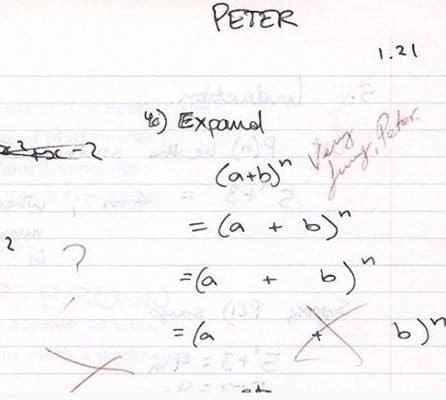 PETER
1.21
4c) Expand
(a+b)ⁿ
Very funny, Peter.
= (a + b)ⁿ
2
?
= (a + b)ⁿ
= (a + b)ⁿ